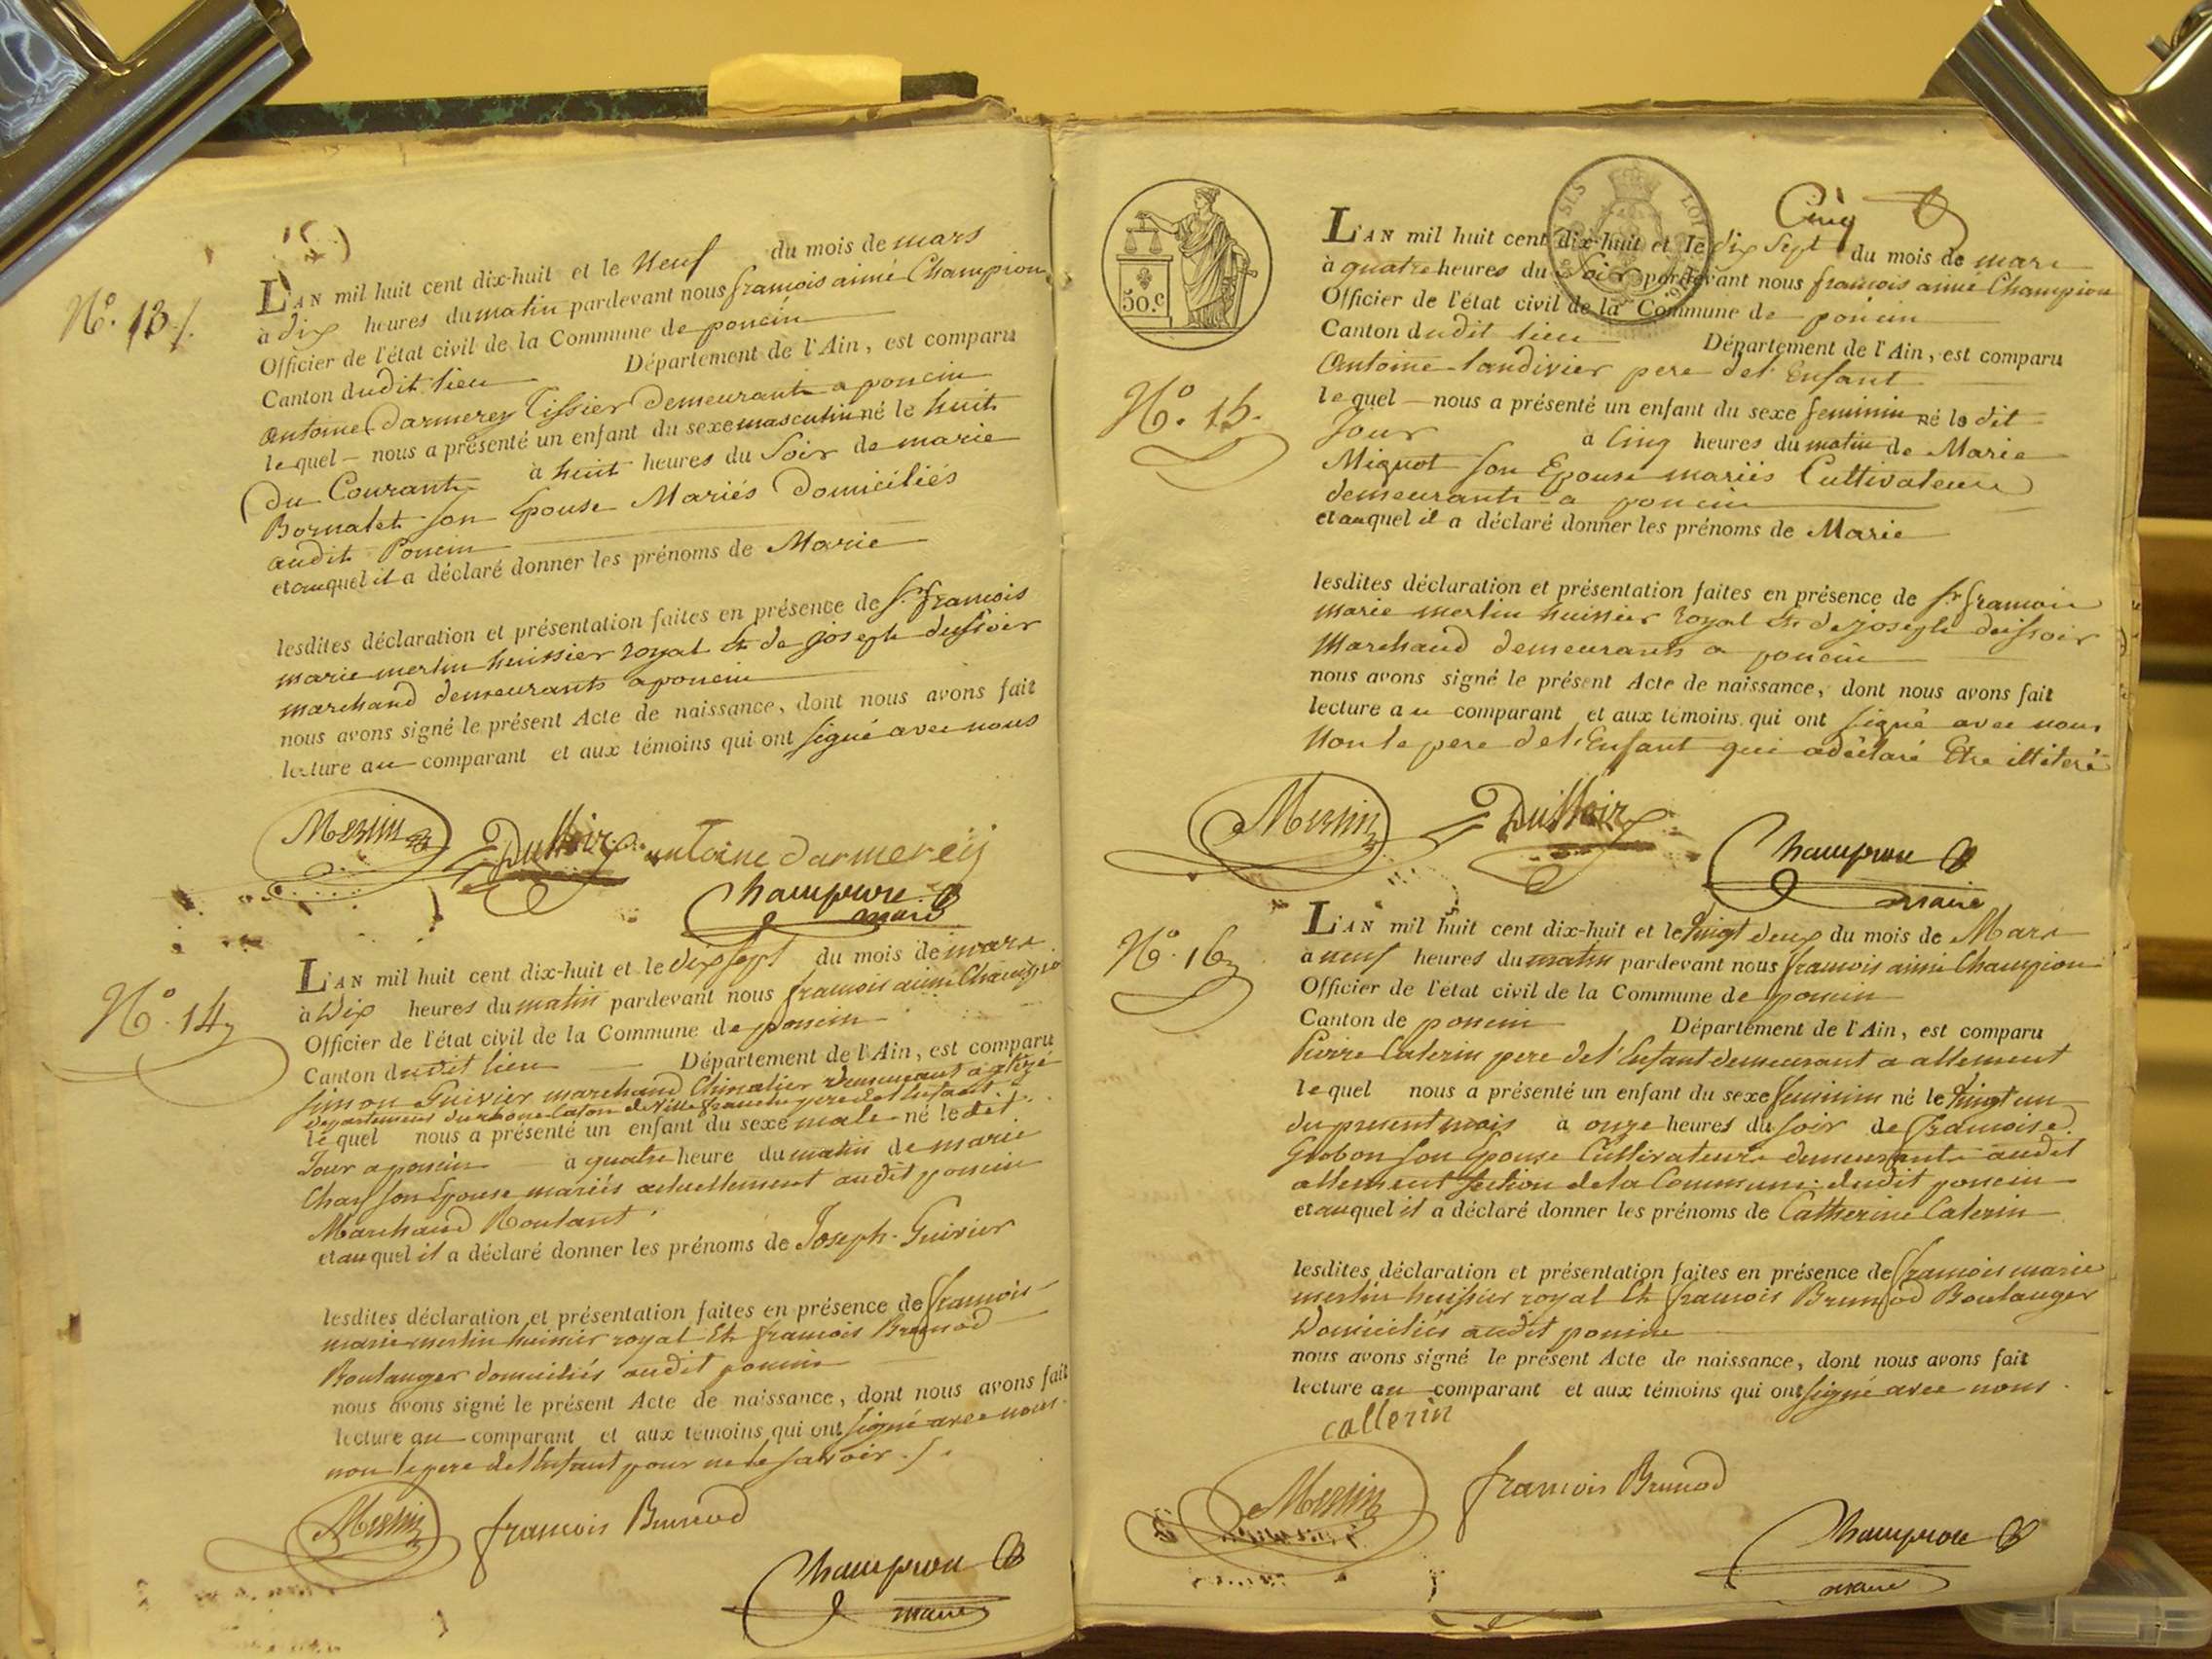 N.o 13
L'AN mil huit cent dix-huit et le Neuf du mois de mars
à dix heures du matin pardevant nous francois aimé Champion
Officier de l'état civil de la Commune de poncin
Canton dudit lieu Département de l'Ain, est comparu
Antoine Darmerey Tissier demeurant a poncin
lequel nous a présenté un enfant du sexe masculin né le huit
du Courant à huit heures du Soir de marie
Bornatet son Epouse Mariés Domiciliés
audit Poncin
et auquel il a déclaré donner les prénoms de Marie
lesdites déclaration et présentation faites en présence de Sr. francois
marie merlin huissier royal Et de joseph dussoir
marchand demeurants a poncin
nous avons signé le présent Acte de naissance, dont nous avons fait
lecture au comparant et aux témoins qui ont signé avec nous
Merlin Dussoir antoine darmereij
Champion
maire
N.o 14
L'AN mil huit cent dix-huit et le dix sept du mois de mars
à Dix heures du matin pardevant nous francois aimé Champion
Officier de l'état civil de la Commune de poncin
Canton dudit lieu Département de l'Ain, est comparu
Simon Guivier marchand demeurant a
departement du rhone Canton de Villefranche pere del'Enfant
lequel nous a présenté un enfant du sexe male né ledit
Jour a poncin à quatre heure du matin de marie
Chay son Epouse mariés actuellement audit poncin
Marchand Roulant
et auquel il a déclaré donner les prénoms de Joseph Guivier
lesdites déclaration et présentation faites en présence de francois
marie merlin huissier royal Et francois Brunod
Boulanger domiciliés audit poncin
nous avons signé le présent Acte de naissance, dont nous avons fait
lecture au comparant et aux témoins qui ont signé avec nous
non le pere del'Enfant pour ne le savoir
Merlin francois Brunod
Champion
maire
Cinq
50.c
N.o 15
L'AN mil huit cent dix-huit et le dix Sept du mois de mars
à quatre heures du Soir pardevant nous francois aimé Champion
Officier de l'état civil de la Commune de poncin
Canton dudit lieu Département de l'Ain, est comparu
Antoine landivier pere del'Enfant
lequel nous a présenté un enfant du sexe feminin né le dit
Jour à Cinq heures du matin de Marie
Miguot son Epouse mariés Cultivateurs
demeurants a poncin
et auquel il a déclaré donner les prénoms de Marie
lesdites déclaration et présentation faites en présence de Sr. francois
marie merlin huissier royal Et de joseph dussoir
Marchand demeurants a poncin
nous avons signé le présent Acte de naissance, dont nous avons fait
lecture au comparant et aux témoins qui ont signé avec nous
Non le pere del'Enfant qui a déclaré Etre illiteré
Merlin Dussoir
Champion
maire
N.o 16
L'AN mil huit cent dix-huit et le Vingt deux du mois de Mars
à neuf heures du matin pardevant nous francois aimé Champion
Officier de l'état civil de la Commune de poncin
Canton de poncin Département de l'Ain, est comparu
Pierre Caterin pere del'Enfant demeurant a allement
lequel nous a présenté un enfant du sexe feminin né le Vingt un
du present mois à onze heures du soir de francoise
Gobon son Epouse Cultivateurs demeurants audit
allement Section dela Commune dudit poncin
et auquel il a déclaré donner les prénoms de Catherine Caterin
lesdites déclaration et présentation faites en présence de francois marie
merlin huissier royal Et francois Brunod Boulanger
Domiciliés audit poncin
nous avons signé le présent Acte de naissance, dont nous avons fait
lecture au comparant et aux témoins qui ont signé avec nous
callerin
Merlin francois Brunod
Champion
maire